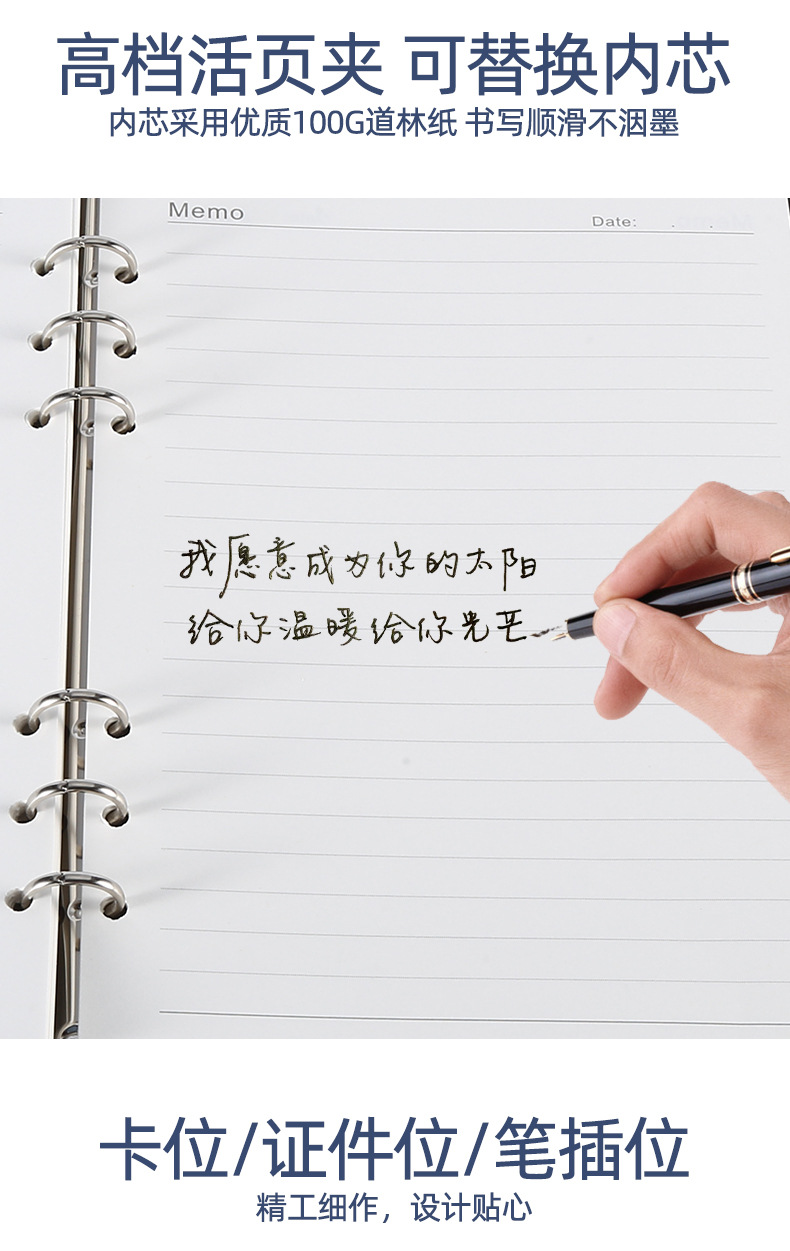 高档活页夹 可替换内芯
内芯采用优质100G道林纸 书写顺滑不洇墨
Memo
Date: . .
我愿意成为你的太阳
给你温暖给你光芒
卡位/证件位/笔插位
精工细作，设计贴心